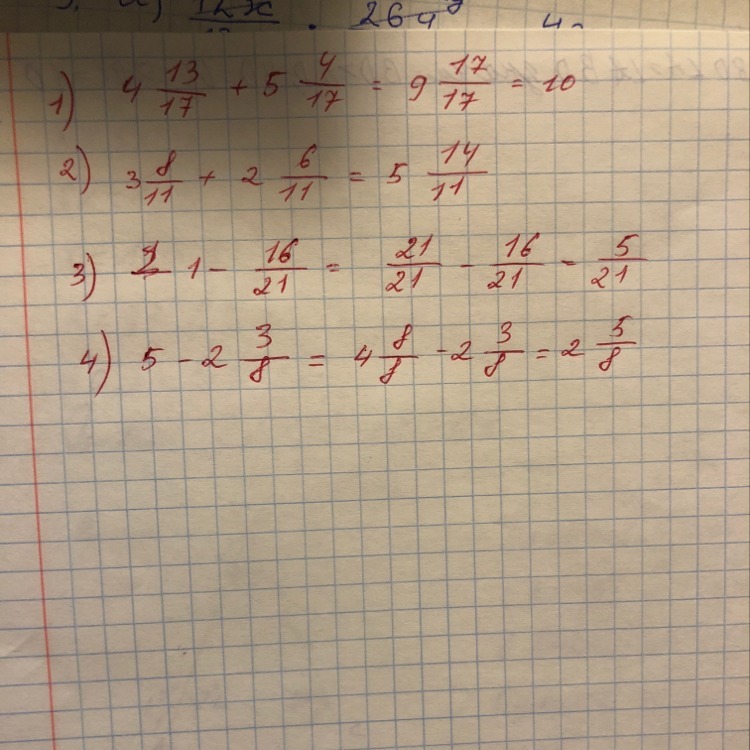 1) 4 13/17 + 5 4/17 = 9 17/17 = 10
2) 3 8/11 + 2 6/11 = 5 14/11
3) 1 - 16/21 = 21/21 - 16/21 = 5/21
4) 5 - 2 3/8 = 4 8/8 - 2 3/8 = 2 5/8